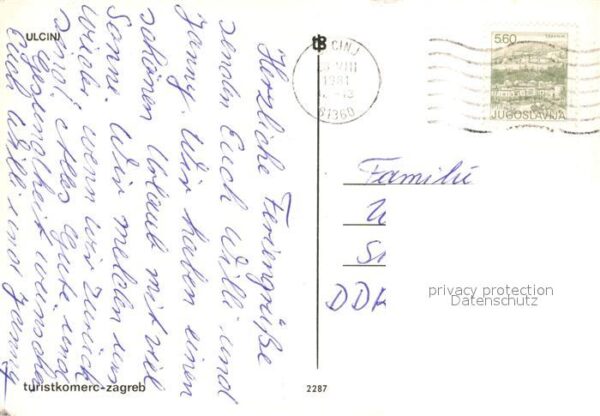 ULCINJ
Herzliche Feriengrüße
senden Euch Willi und
Janny. Wir haben einen
schönen Urlaub mit viel
Sonne. Wir melden uns
wieder, wenn wir zurück
sind. Alles Gute und
Gesundheit wünschen
Euch Willi und Janny
turistkomerc-zagreb
2287
CINJ
VIII
1981
61360
5,60
JUGOSLAVIJA
Familie
DDR
privacy protection
Datenschutz